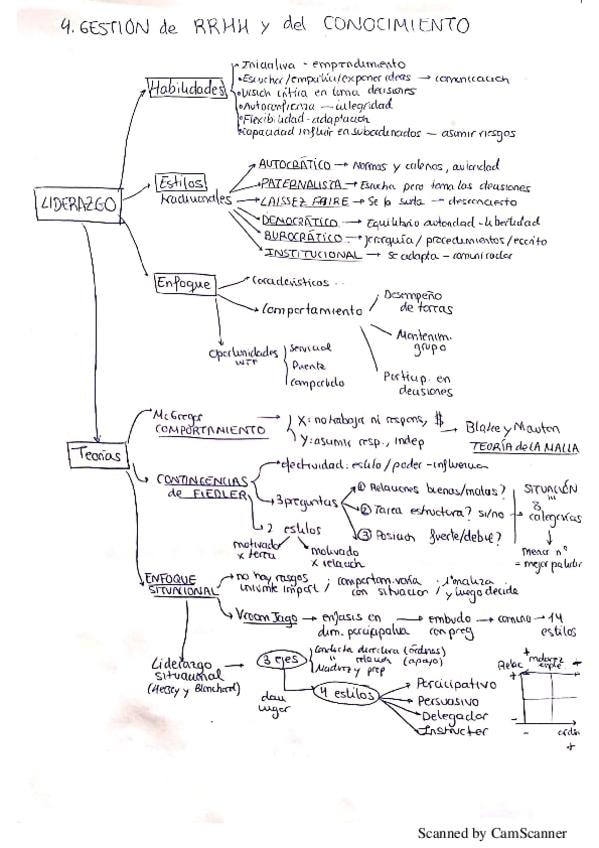 4. GESTIÓN de RRHH y del CONOCIMIENTO
LIDERAZGO
Habilidades
• Iniciativa - emprendimiento
• Escuchar/empatía/exponer ideas → comunicación
• Visión crítica en toma decisiones
• Autoconfianza — integridad
• Flexibilidad - adaptación
• Capacidad influir en subordinados — asumir riesgos
Estilos
tradicionales
AUTOCRÁTICO → Normas y , autoridad
PATERNALISTA → Escucha pero toma las decisiones
LAISSEZ FAIRE → Se la suda — desconcierto
DEMOCRÁTICO → Equilibrio autoridad - libertad
BUROCRÁTICO → jerarquía / procedimientos / escrito
INSTITUCIONAL → se adapta - comunicador
Enfoque
Características ..
Comportamiento
Desempeño
de tareas
Mantenim.
grupo
Particip. en
decisiones
Oportunidades
Servicial
Puente
compartido
Teorías
McGregor
COMPORTAMIENTO
X: no trabaja ni respons, $
Y: asume resp., indep
Blake y Mouton
TEORÍA de LA MALLA
CONTINGENCIAS
de FIEDLER
efectividad: estilo / poder - influencia
3 preguntas
① Relaciones buenas/malas?
② Tarea estructura? si/no
③ Posición fuerte/debil?
SITUACIÓN
8
categorías
menor nº
= mejor
2 estilos
motivado
x tarea
motivado
x relación
ENFOQUE
SITUACIONAL
no hay rasgos
; comportam. varía
con situación
; 1º analiza
y luego decide
Vroom Jago → énfasis en
dim. participativa
→ embudo
con preg
→ camino → 14
estilos
Liderazgo
situacional
(Hersey y Blanchard)
3 ejes
Conducta directiva (órdenes)
" relación (apoyo)
Madurez y prep
dan
lugar
4 estilos
Participativo
Persuasivo
Delegador
Instructor
Relac
+ madurez
+
-
-
+
Scanned by CamScanner